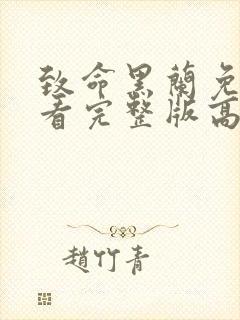 致命黑蘭免
看完整版高
趙竹青